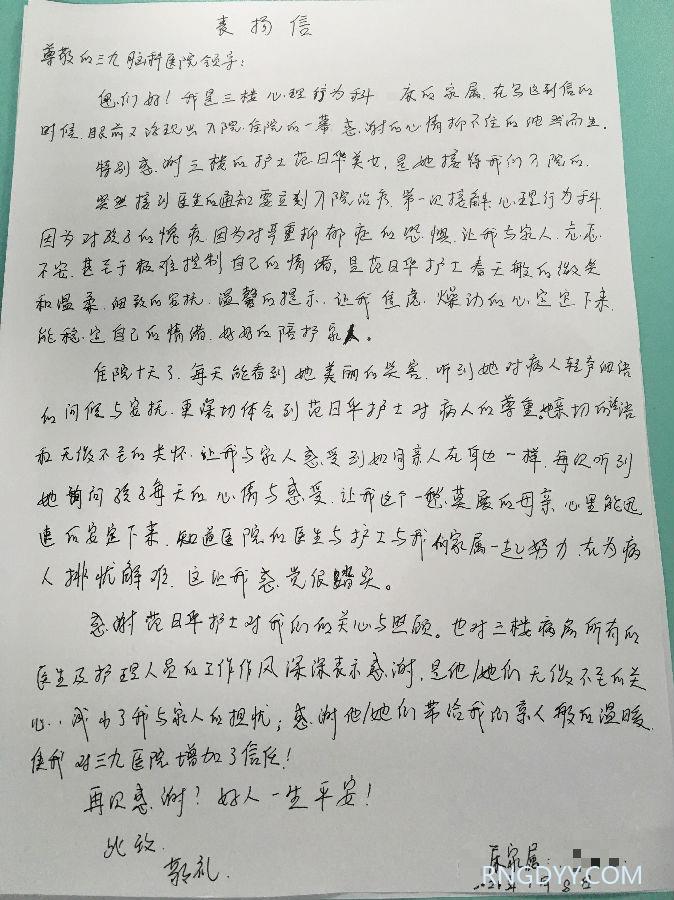 表扬信
尊敬的三九脑科医院领导：
您们好！我是三楼心理行为科 床的家属，在写这封信的
时候，眼前又浮现出入院、住院的一幕，感谢的心情抑不住的油然而生。
特别感谢三楼的护士范日华美女，是她接待我们入院的。
突然接到医生的通知要立刻入院治疗，第一次接触心理行为科，
因为对孩子的愧疚，因为对严重抑郁症的恐惧，让我与家人，忐忑
不安，甚至于极难控制自己的情绪，是范日华护士春天般的微笑
和温柔、细致的安抚、温馨的提示，让我焦虑、燥动的心定定下来，
能稳定自己的情绪，好好的陪护家人。
住院十天了，每天能看到她美丽的笑容，听到她对病人轻声细语
的问候与安抚，更深切体会到范日华护士对病人的尊重，她亲切的话语
和无微不至的关怀，让我与家人感受到如同亲人在身边一样，每次听到
她询问孩子每天的心情与感受，让我这个一愁莫展的母亲，心里能迅
速的安定下来，知道医院的医生与护士与我们家属一起努力，在为病
人排忧解难，这让我感觉很踏实。
感谢范日华护士对我们的关心与照顾。也对三楼病房所有的
医生及护理人员的工作作风深深表示感谢，是他/她们无微不至的关
心，减少了我与家人的担忧；感谢他/她们带给我们亲人般的温暖，
使我对三九医院增加了信任！
再次感谢！好人一生平安！
此致
敬礼
床家属：
RNGDYY.COM